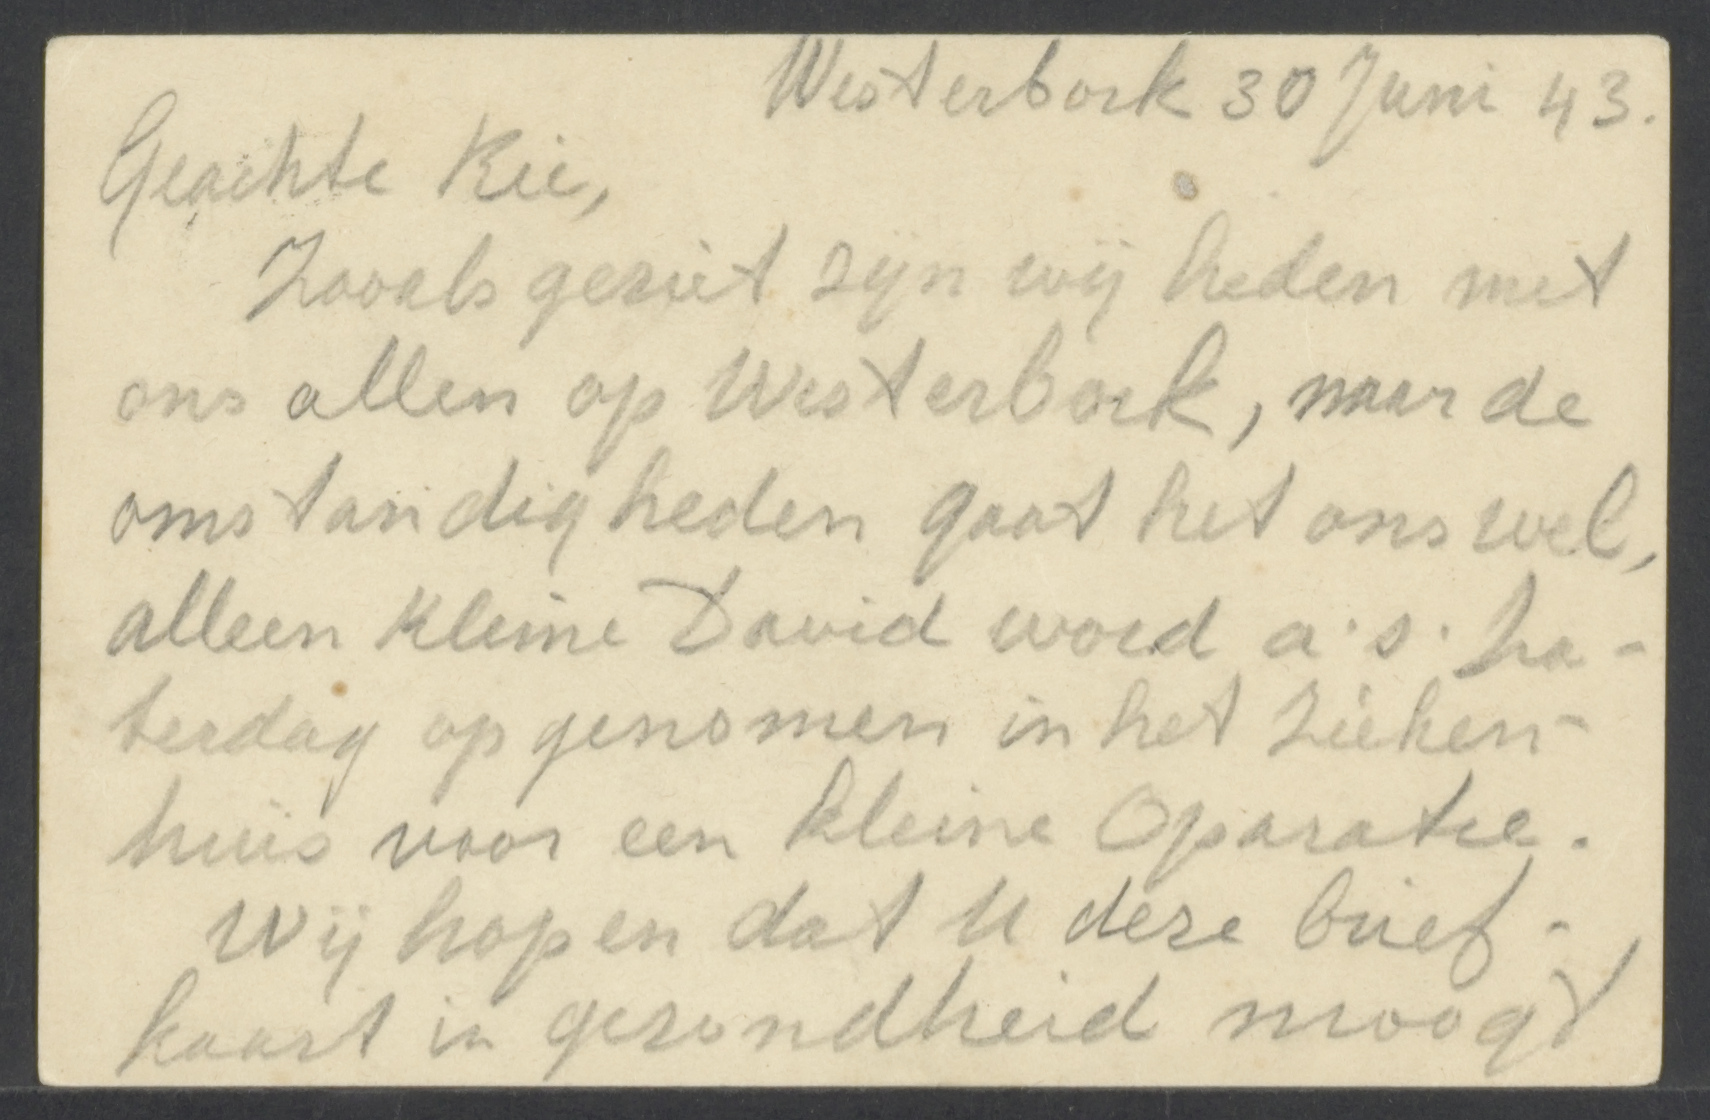 Westerbork 30 Juni 43.
Geachte Rie,
Zooals geziet zijn wij heden met
ons allen op Westerbork, naar de
omstandigheden gaat het ons wel,
alleen kleine David word a.s. Za-
terdag opgenomen in het zieken-
huis voor een kleine Oparatie.
Wij hopen dat U deze brief-
kaart in gezondheid moogt